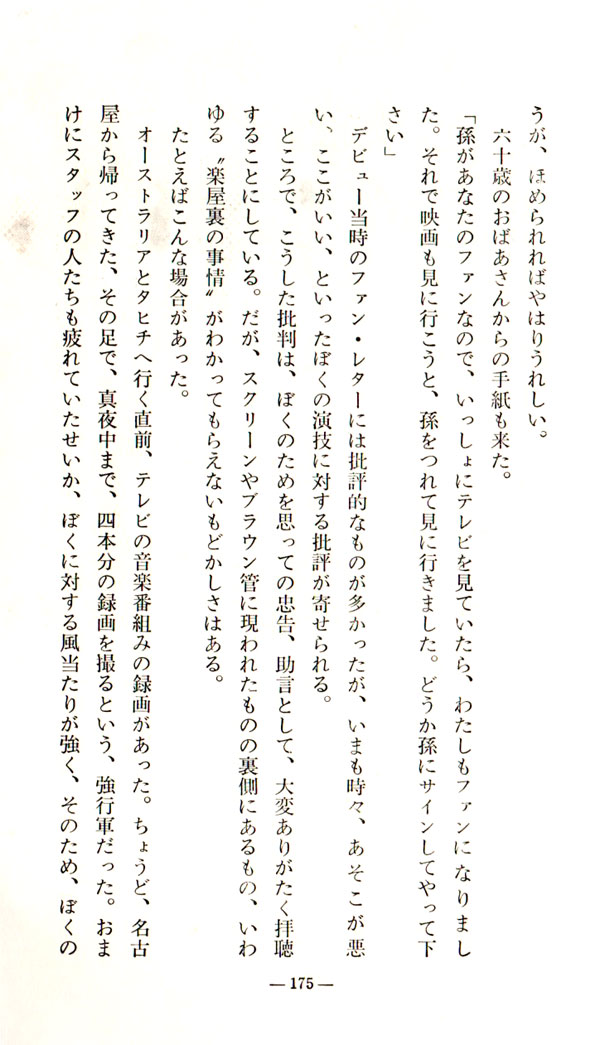 うが、ほめられればやはりうれしい。
六十歳のおばあさんからの手紙も来た。
「孫があなたのファンなので、いっしょにテレビを見ていたら、わたしもファンになりまし
た。それで映画も見に行こうと、孫をつれて見に行きました。どうか孫にサインしてやって下
さい」
デビュー当時のファン・レターには批評的なものが多かったが、いまも時々、あそこが悪
い、ここがいい、といったぼくの演技に対する批評が寄せられる。
ところで、こうした批判は、ぼくのためを思っての忠告、助言として、大変ありがたく拝聴
することにしている。だが、スクリーンやブラウン管に現われたものの裏側にあるもの、いわ
ゆる〝楽屋裏の事情〟がわかってもらえないもどかしさはある。
たとえばこんな場合があった。
オーストラリアとタヒチへ行く直前、テレビの音楽番組みの録画があった。ちょうど、名古
屋から帰ってきた、その足で、真夜中まで、四本分の録画を撮るという、強行軍だった。おま
けにスタッフの人たちも疲れていたせいか、ぼくに対する風当たりが強く、そのため、ぼくの
— 175 —